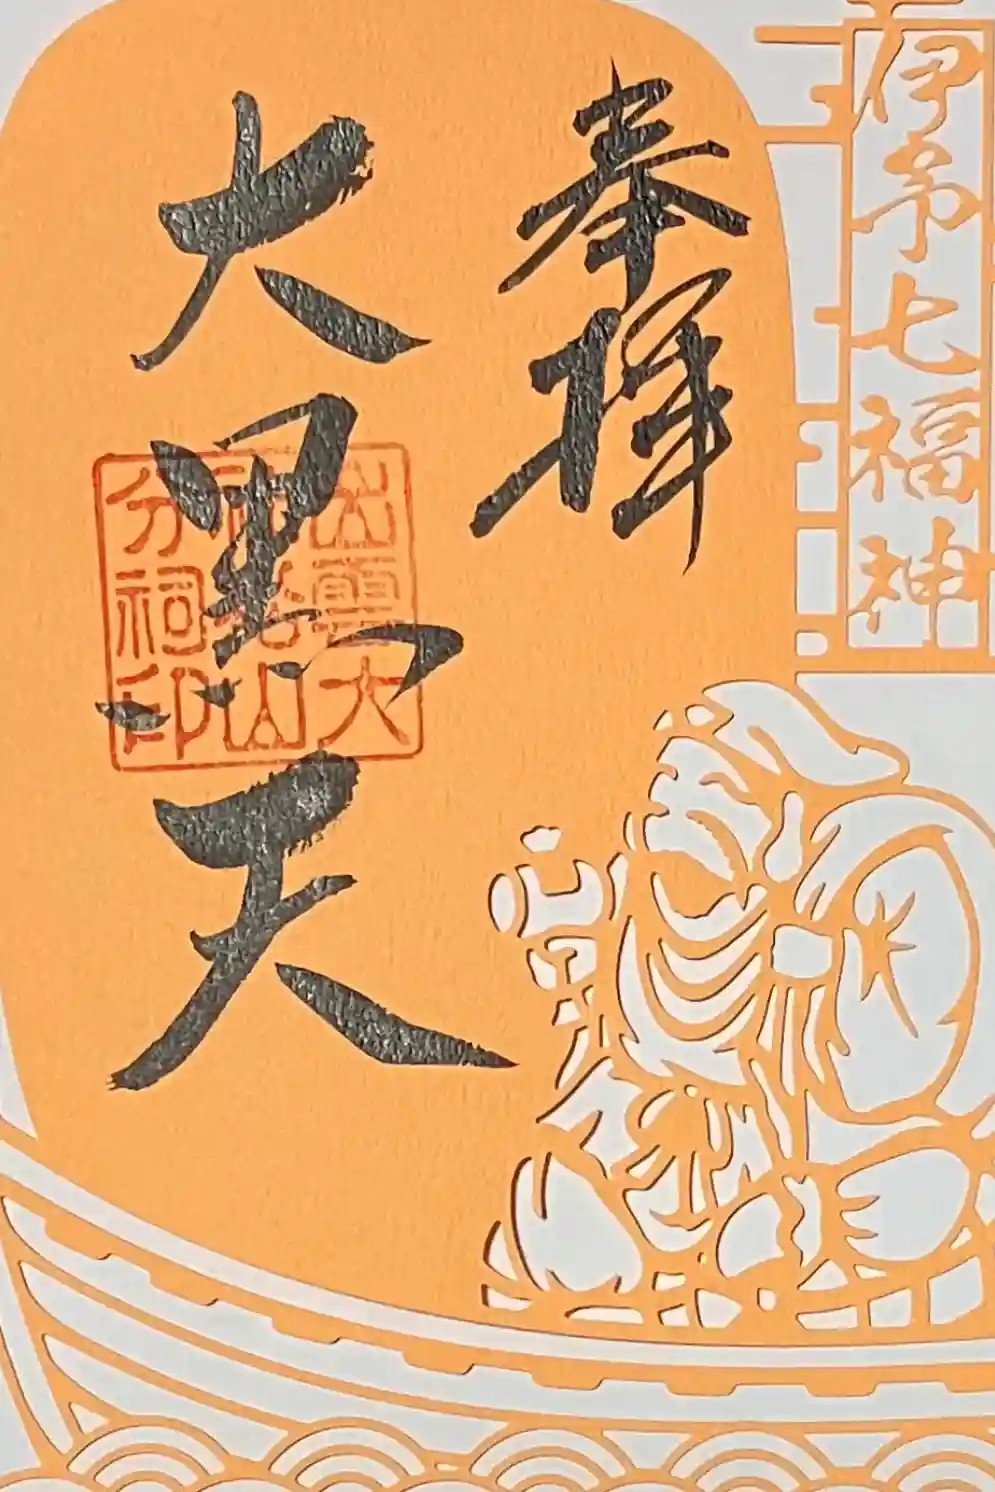 伊予七福神
奉拝
大黒天
出雲大
社松山
分祠印